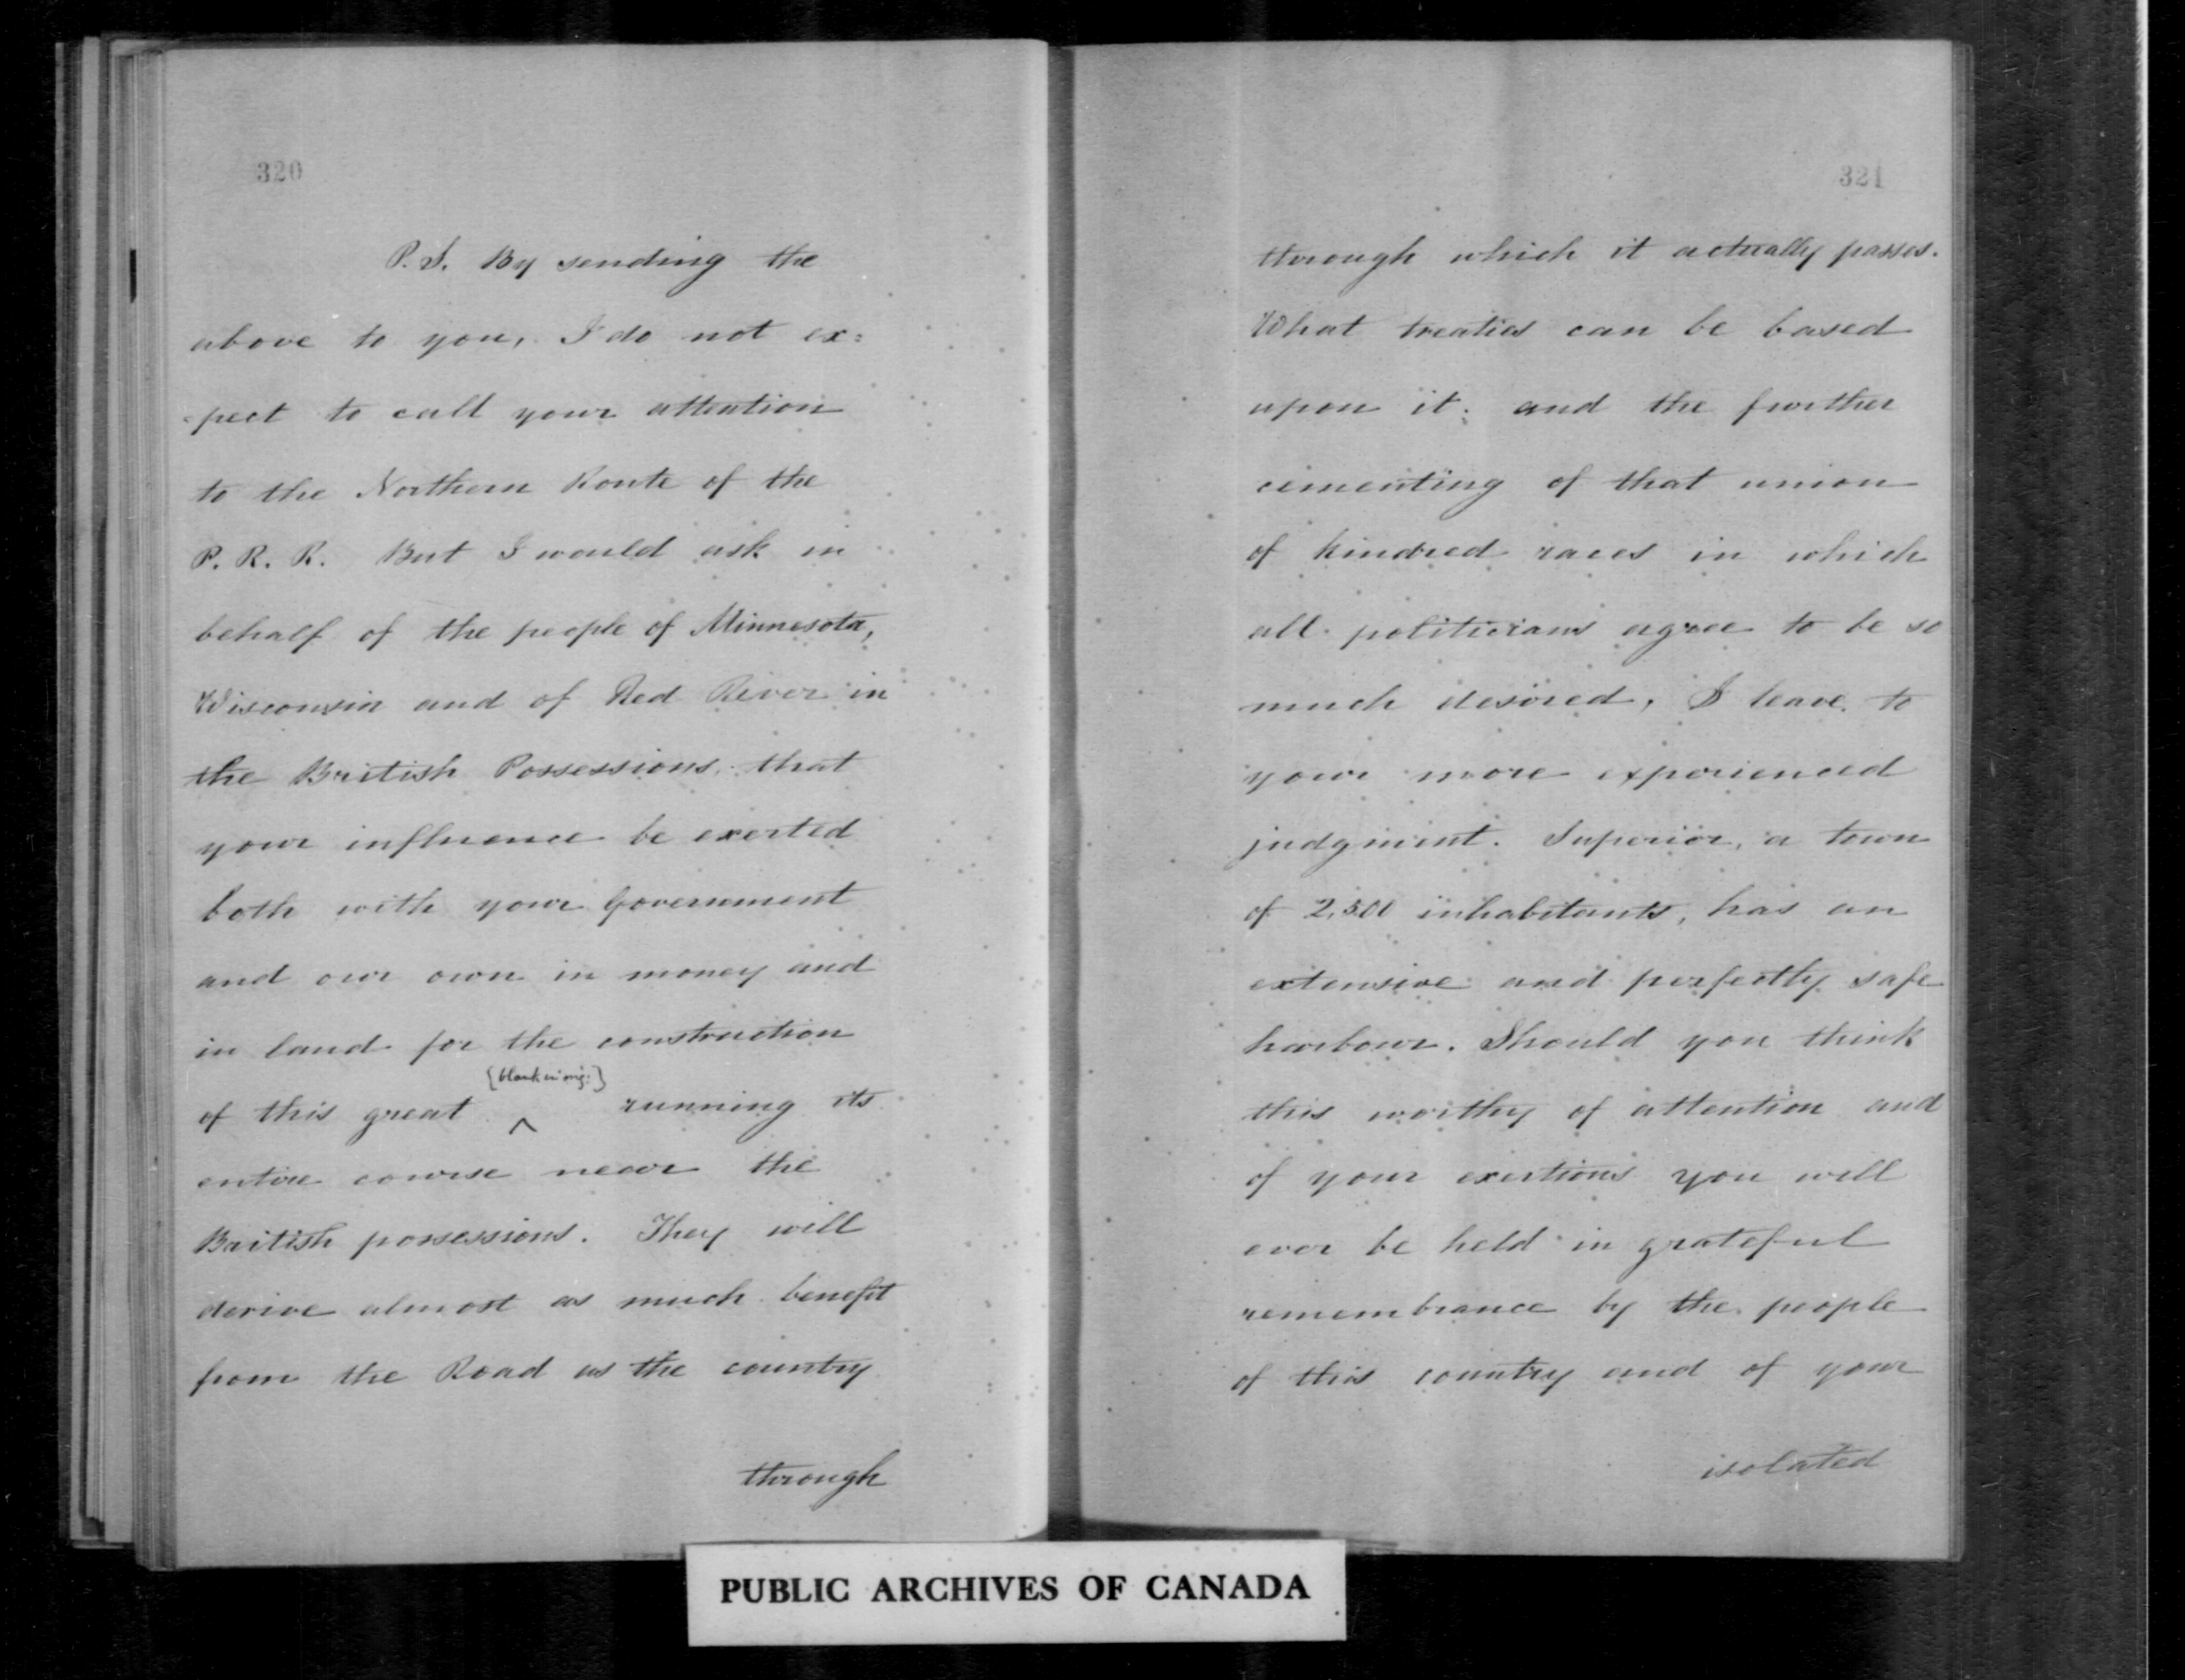 320
P.S. By sending the
above to you, I do not ex=
=pect to call your attention
to the Northern Route of the
P. R. R. But I would ask in
behalf of the people of Minnesota,
Wisconsin and of Red River in
the British Possessions, that
your influence be exerted
both with your Government
and our own in money and
in land for the construction
{blank in orig:}
of this great ^ running its
entire course near the
British possessions. They will
derive almost as much benefit
from the Road as the country
through
321
through which it actually passes.
What treaties can be based
upon it; and the further
cementing of that union
of kindred races in which
all politicians agree to be so
much desired, I leave to
your more experienced
judgment. Superior, a town
of 2,500 inhabitants, has an
extensive and perfectly safe
harbour. Should you think
this worthy of attention and
of your exertions you will
ever be held in grateful
remembrance by the people
of this country and of your
isolated
PUBLIC ARCHIVES OF CANADA